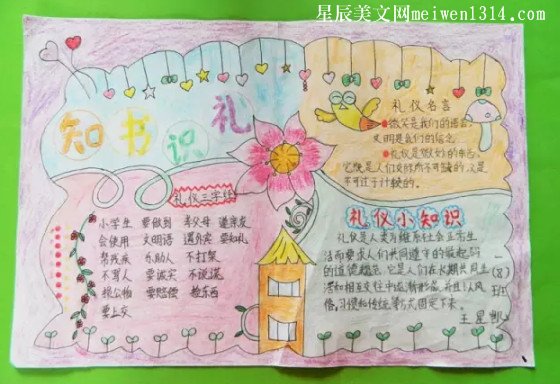 星辰美文网meiwen1314.com
知书识礼
礼仪名言
微笑是我们的语言
文明是我们的信念
礼仪是微妙的东西
它既是人们交际所不可缺的,又是
不可过于计较的。
礼仪三字经
小学生 要做到 孝父母 道亲友
会使用 文明语 遇外宾 要知礼
帮残疾 乐助人 不打架
不骂人 要诚实 不说谎
损公物 要赔偿 捡东西
要上交
礼仪小知识
礼仪是人类为维系社会正常生
活而要求人们共同遵守的最起码
的道德规范,它是人们在长期共同生
活和相互交往中逐渐形成,并且以风
俗、习惯和传统等方式固定下来。
一(8)班
王星凯